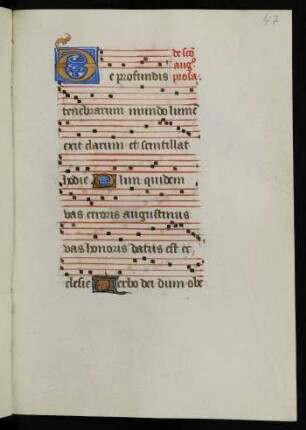 47
de sco
aug°
prosa.
De profundis
tenebrarum mundo lume
exit clarum et scintillat
hodie Olim quidem
vas erroris augustinus
vas honoris datus est ec
clesie Verbo dei dum obe